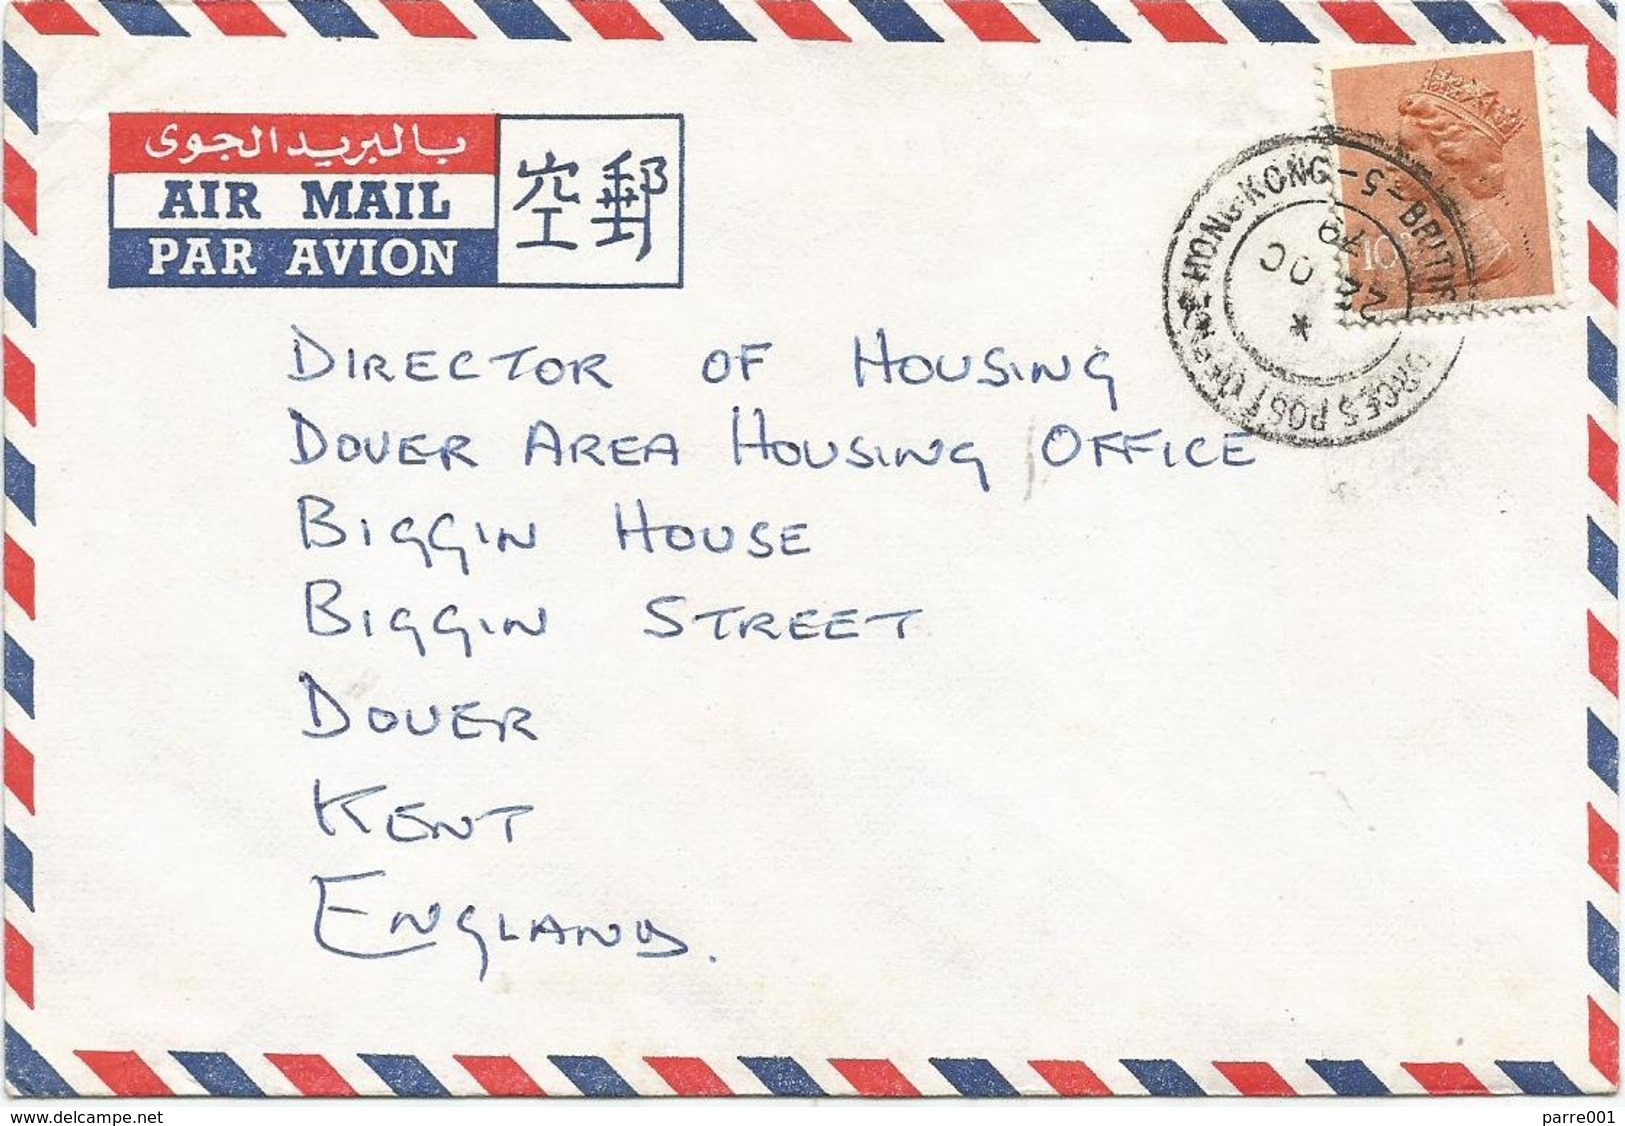 بالبريد الجوى
AIR MAIL
PAR AVION
空郵
DIRECTOR OF HOUSING
DOVER AREA HOUSING OFFICE
BIGGIN HOUSE
BIGGIN STREET
DOVER
KENT
ENGLAND.
HONG KONG -5- BRITISH FORCES POST OFFICE
22 OC
79
10
delcampe.net
parre001